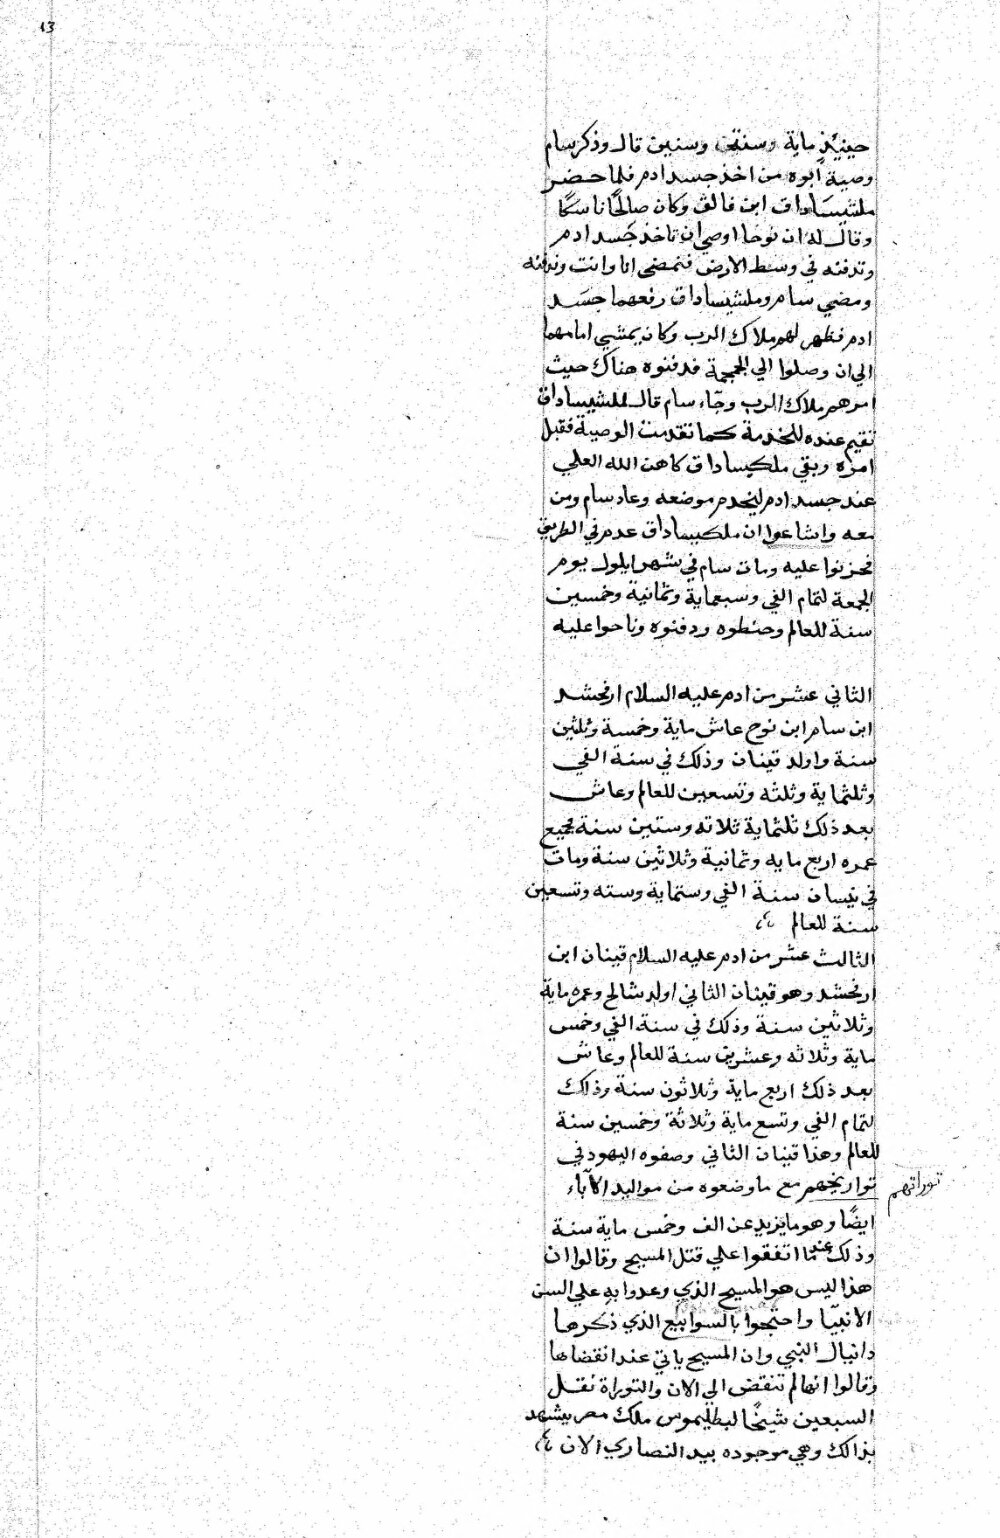 13
حينيذ ماية وسنتين وسنين قال وذكر سام
وصية أبوه من اخذ جسد ادم فلما حضر
ملشيساداق ابن فالق وكان صالحًا ناسكًا
وقال له ان نوحا اوصي ان تاخذ جسد ادم
وتدفنه في وسط الارض فنمضي انا وانت وندفنه
ومضي سام وملشيساداق رفعهما جسد
ادم فظهر لهم ملاك الرب وكان يمشي امامهما
الي ان وصلوا الي الجمجمة فدفنوه هناك حيث
امرهم ملاك الرب وجاء سام قال لملشيساداق
تقيم عنده للخدمة كما تقدمت الوصية فقبل
امره وبقي ملكيساداق كاهن الله العلي
عند جسد ادم ليخدم موضعه وعاد سام ومن
معه واشاعوا ان ملكيساداق عدم في الطريق
فحزنوا عليه ومات سام في شهر ايلول يوم
الجمعة لتمام الفي وسبعماية وثمانية وخمسين
سنة للعالم وحنطوه ودفنوه وناحوا عليه
الثاني عشر من ادم عليه السلام ارفخشد
ابن سام ابن نوح عاش ماية وخمسة وثلثين
سنة واولد قينان وذلك في سنة الفي
وثلثماية وثلثه وتسعين للعالم وعاش
بعد ذلك ثلثماية ثلاثه وستين سنة فجميع
عمره اربع مايه وثمانية وثلاثين سنة ومات
في نيسان سنة الفي وستماية وسته وتسعين
سنة للعالم
الثالث عشر من ادم عليه السلام قينان ابن
ارفخشد وهو قينان الثاني اولد شالح وعمره ماية
وثلاثين سنة وذلك في سنة الفي وخمس
ماية وثلاثه وعشرين سنة للعالم وعاش
بعد ذلك اربع ماية وثلاثون سنة وذلك
لتمام الفي وتسع ماية وثلاثة وخمسين سنة
للعالم وهذا قينان الثاني وصفوه اليهود في
تواريخهم مع ما وضعوه من مواليد الآباء
توراتهم
ايضًا وهو ما يزيد عن الف وخمس ماية سنة
وذلك عندما اتفقوا علي قتل المسيح وقالوا ان
هذا ليس هو المسيح الذي وعدوا به علي السن
الانبيّا واحتجوا بالسوابيع الذي ذكرها
دانيال النبي وان المسيح ياتي عند انقضاها
وقالوا انها لم تنقض الي الان والتوراة نقل
السبعين شيخًا لبطليموس ملك مصر يشهد
بذالك وهي موجوده بيد النصاري الان